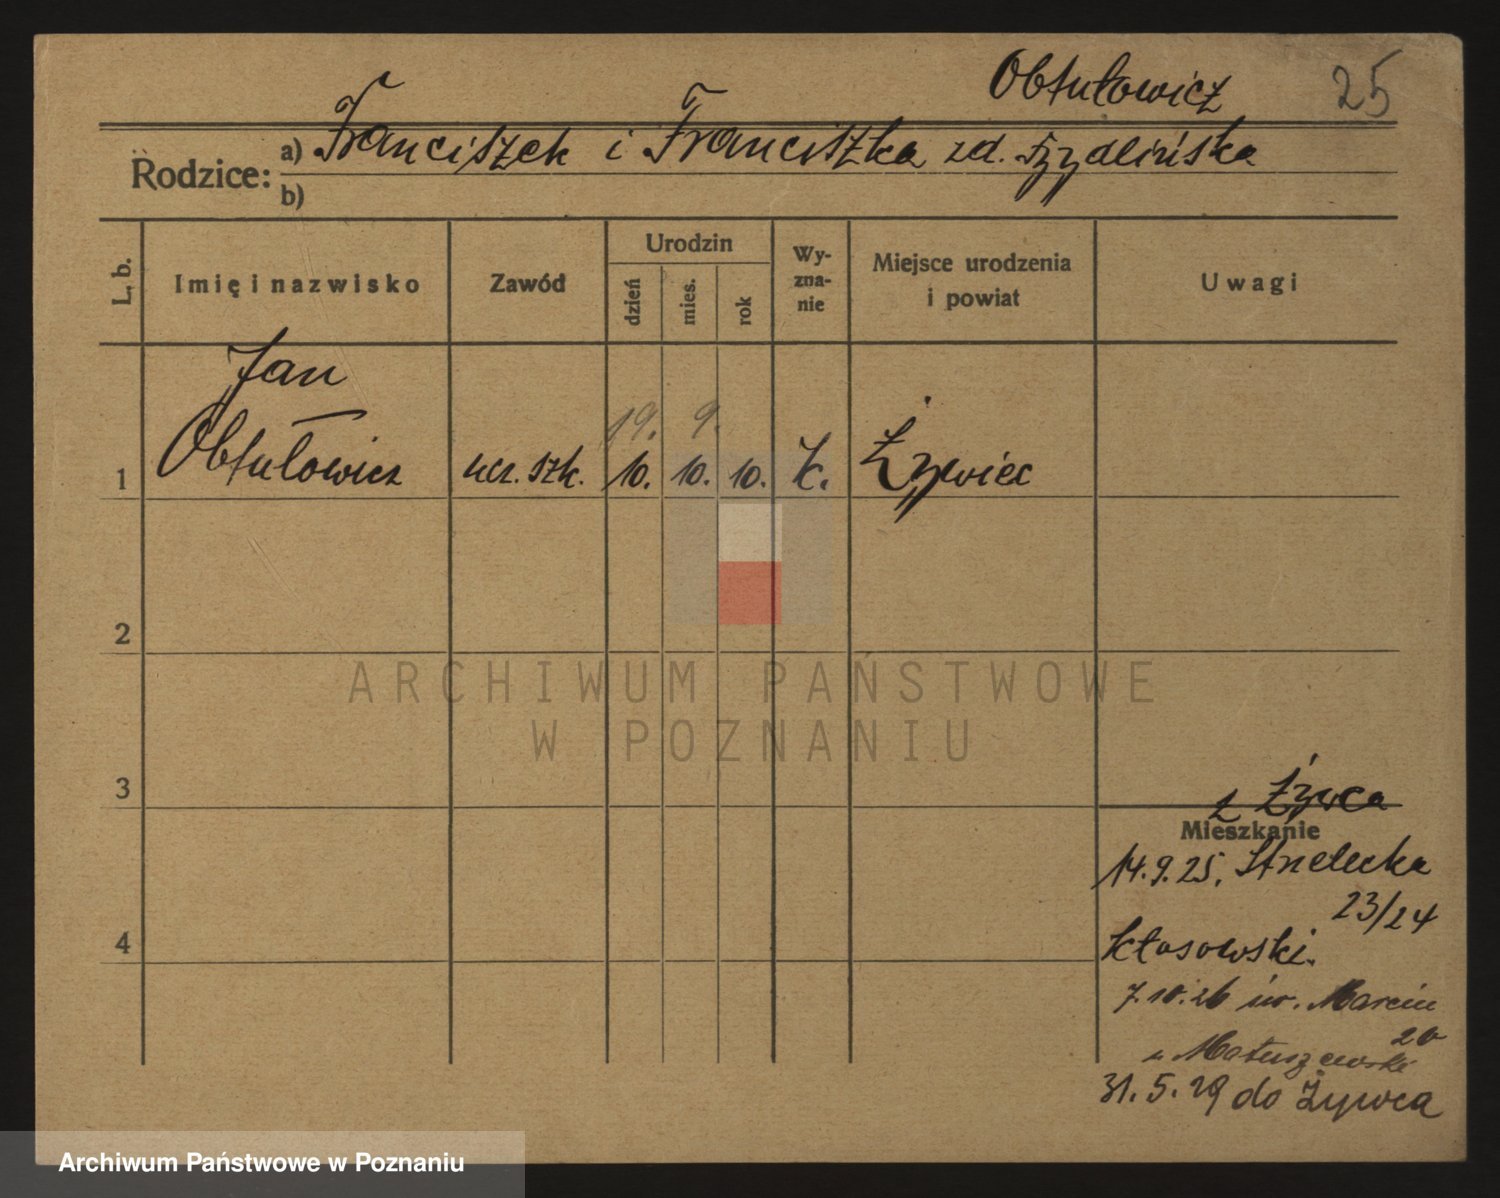 Obtułowicz 25
Rodzice: a) Franciszek i Franciszka zd.
b)
L. b. Imię i nazwisko Zawód Urodzin dzień mies. rok Wyznanie Miejsce urodzenia i powiat Uwagi
Jan
19. 9.
1 Obtułowicz ucz. szk. 10. 10. 10. k. Żywiec
2
ARCHIWUM PAŃSTWOWE
W POZNANIU
3
z Żywca
Mieszkanie
14.9.25. Strzelecka
23/24
4 Kłosowski.
7.10.26 św. Marcin
20
u Matuszewski
31.5.29 do Żywca
Archiwum Państwowe w Poznaniu